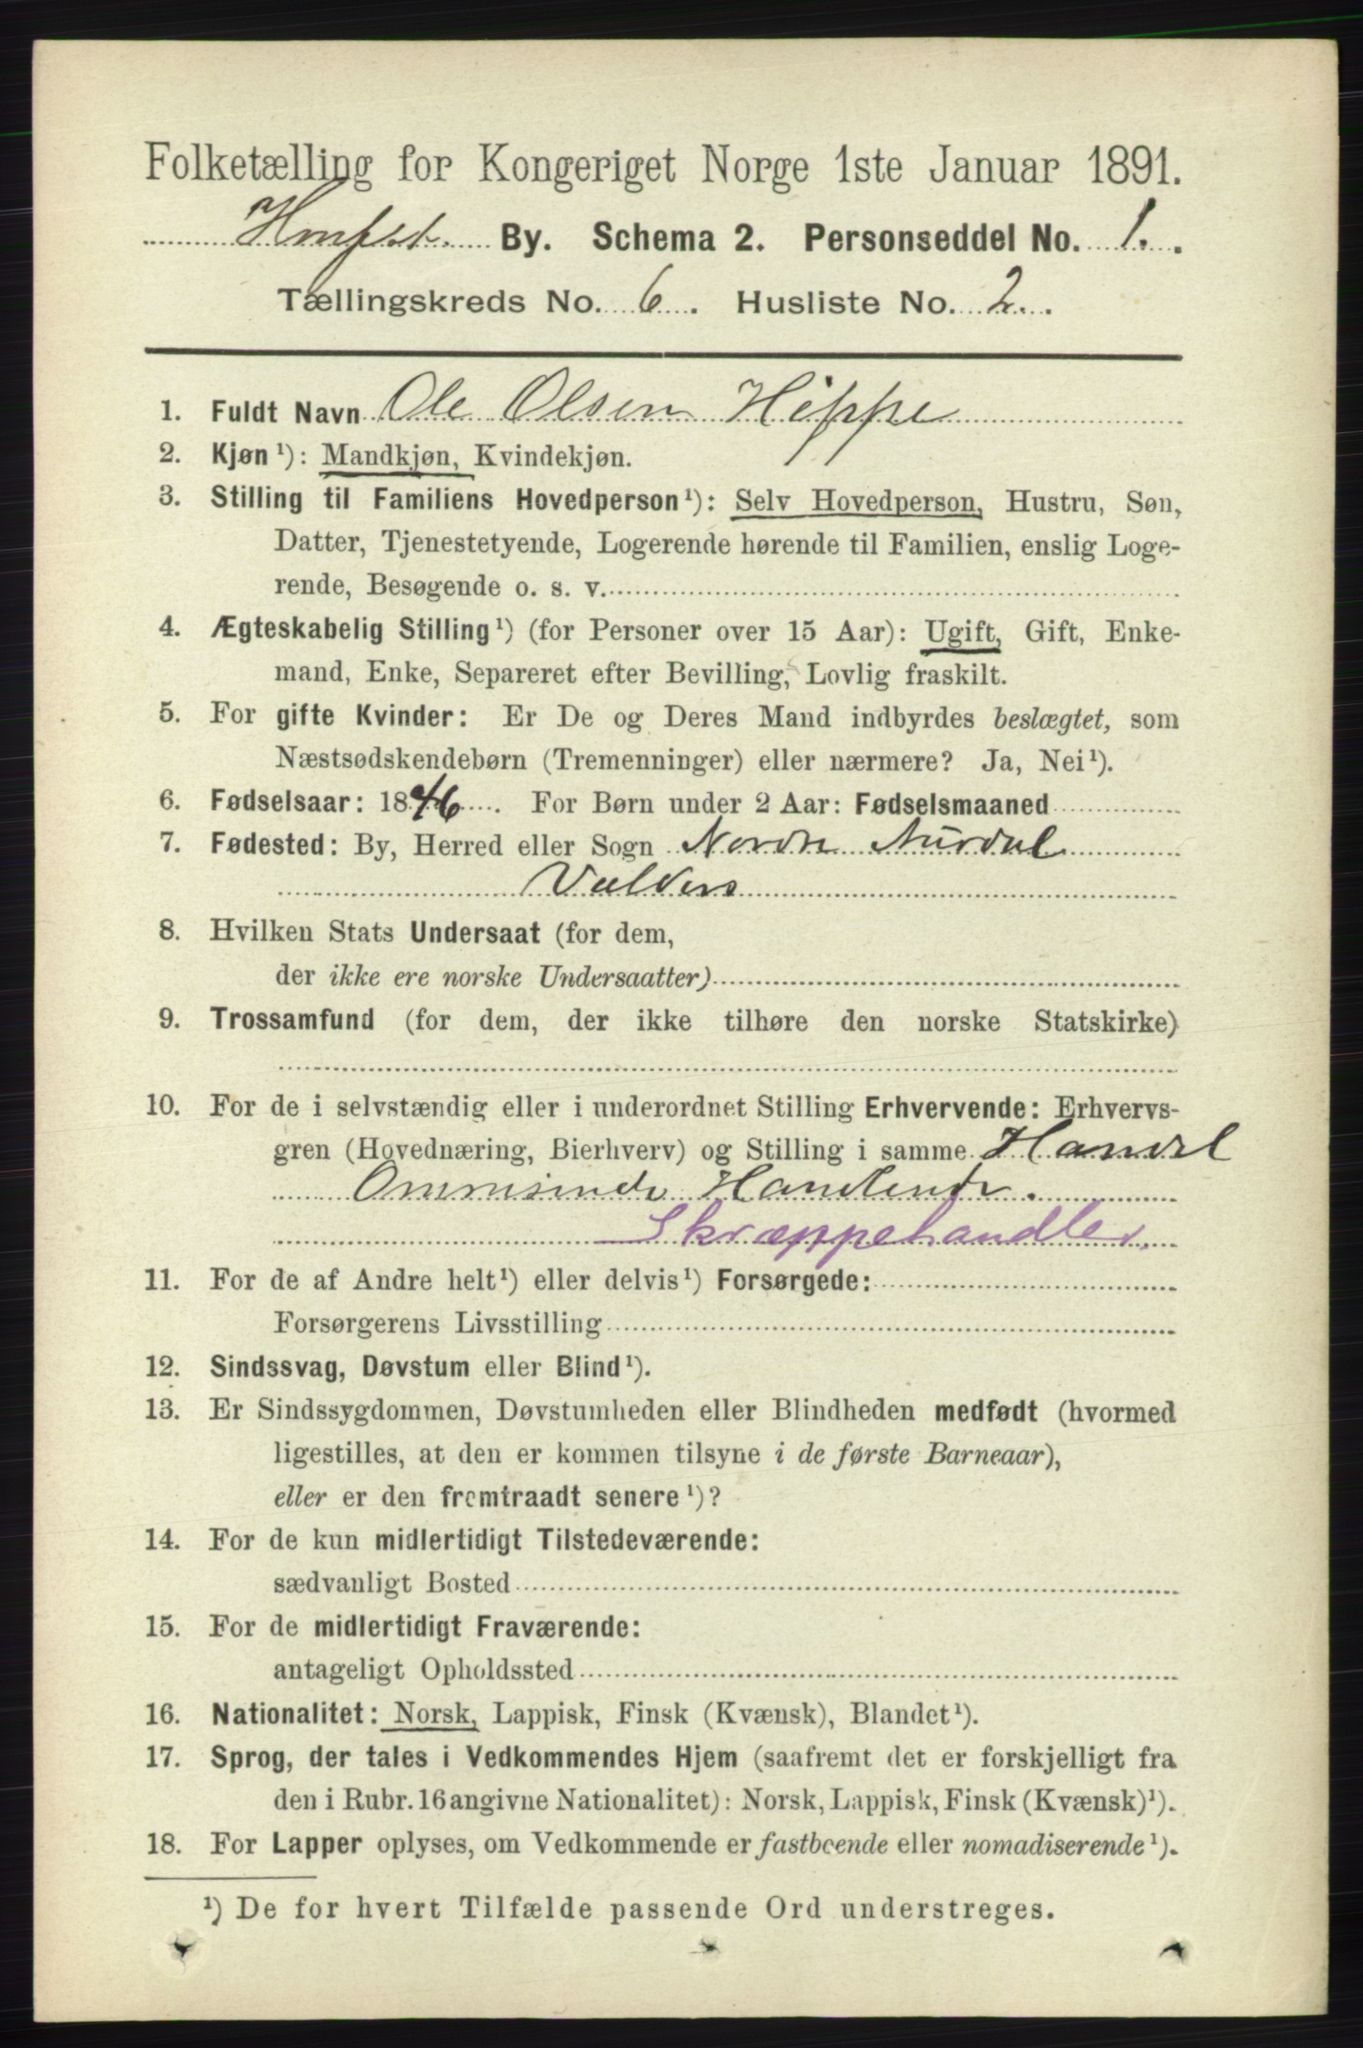 Folketælling for Kongeriget Norge 1ste Januar 1891.
By. Schema 2. Personseddel No. 1.
Tællingskreds No. 6. Husliste No. 2.
1. Fuldt Navn Ole Olsen Hippe
2. Kjøn ¹): Mandkjøn, Kvindekjøn.
3. Stilling til Familiens Hovedperson¹): Selv Hovedperson, Hustru, Søn,
Datter, Tjenestetyende, Logerende hørende til Familien, enslig Loge-
rende, Besøgende o. s. v.
4. Ægteskabelig Stilling¹) (for Personer over 15 Aar): Ugift, Gift, Enke-
mand, Enke, Separeret efter Bevilling, Lovlig fraskilt.
5. For gifte Kvinder: Er De og Deres Mand indbyrdes beslægtet, som
Næstsødskendebørn (Tremenninger) eller nærmere? Ja, Nei¹).
6. Fødselsaar: 1846. For Børn under 2 Aar: Fødselsmaaned
7. Fødested: By, Herred eller Sogn Nordre Aurdal
Valders
8. Hvilken Stats Undersaat (for dem,
der ikke ere norske Undersaatter)
9. Trossamfund (for dem, der ikke tilhøre den norske Statskirke)
10. For de i selvstændig eller i underordnet Stilling Erhvervende: Erhvervs-
gren (Hovednæring, Bierhverv) og Stilling i samme Handel
Handlende.
Skræppehandler.
11. For de af Andre helt¹) eller delvis¹) Forsørgede:
Forsørgerens Livsstilling
12. Sindssvag, Døvstum eller Blind¹).
13. Er Sindssygdommen, Døvstumheden eller Blindheden medfødt (hvormed
ligestilles, at den er kommen tilsyne i de første Barneaar),
eller er den fremtraadt senere¹)?
14. For de kun midlertidigt Tilstedeværende:
sædvanligt Bosted
15. For de midlertidigt Fraværende:
antageligt Opholdssted
16. Nationalitet: Norsk, Lappisk, Finsk (Kvænsk), Blandet¹).
17. Sprog, der tales i Vedkommendes Hjem (saafremt det er forskjelligt fra
den i Rubr. 16 angivne Nationalitet): Norsk, Lappisk, Finsk (Kvænsk)¹).
18. For Lapper oplyses, om Vedkommende er fastboende eller nomadiserende¹).
¹) De for hvert Tilfælde passende Ord understreges.